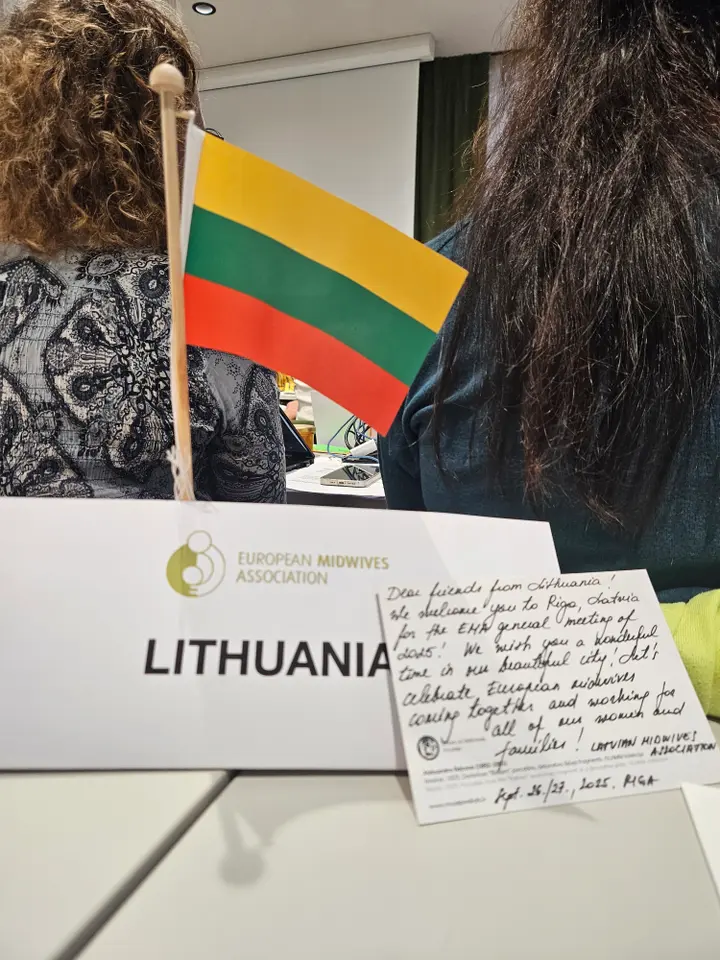 EUROPEAN MIDWIVES
ASSOCIATION
LITHUANIA
Dear friends from Lithuania!
We welcome you to Riga, Latvia
for the EMA general meeting of
2025! We wish you a wonderful
time in our beautiful city! Let's
celebrate European midwives
coming together and working for
all of our women and
families! LATVIAN MIDWIVES
ASSOCIATION
Sept. 26./27., 2025. RIGA